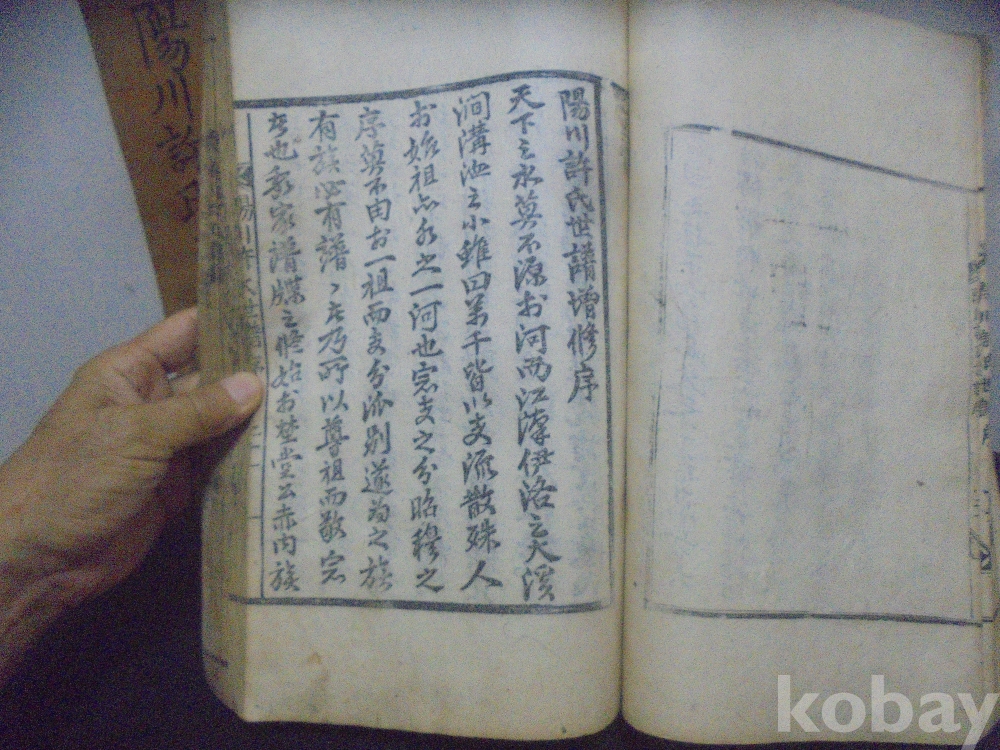 陽川許氏世譜增修序
天下之水莫不源於河而江漢伊洛之大溪
澗溝洫之小雖四羕千皆以支流散殊人
於始祖亦水之一河也宗支之分昭穆之
序莫不由於一祖而支分派別遂爲之族
有族必有譜〻者乃所以尊祖而敬宗
者也我家譜牒之修始於埜堂公赤內族
陽川許氏世譜序
陽川許氏
kobay